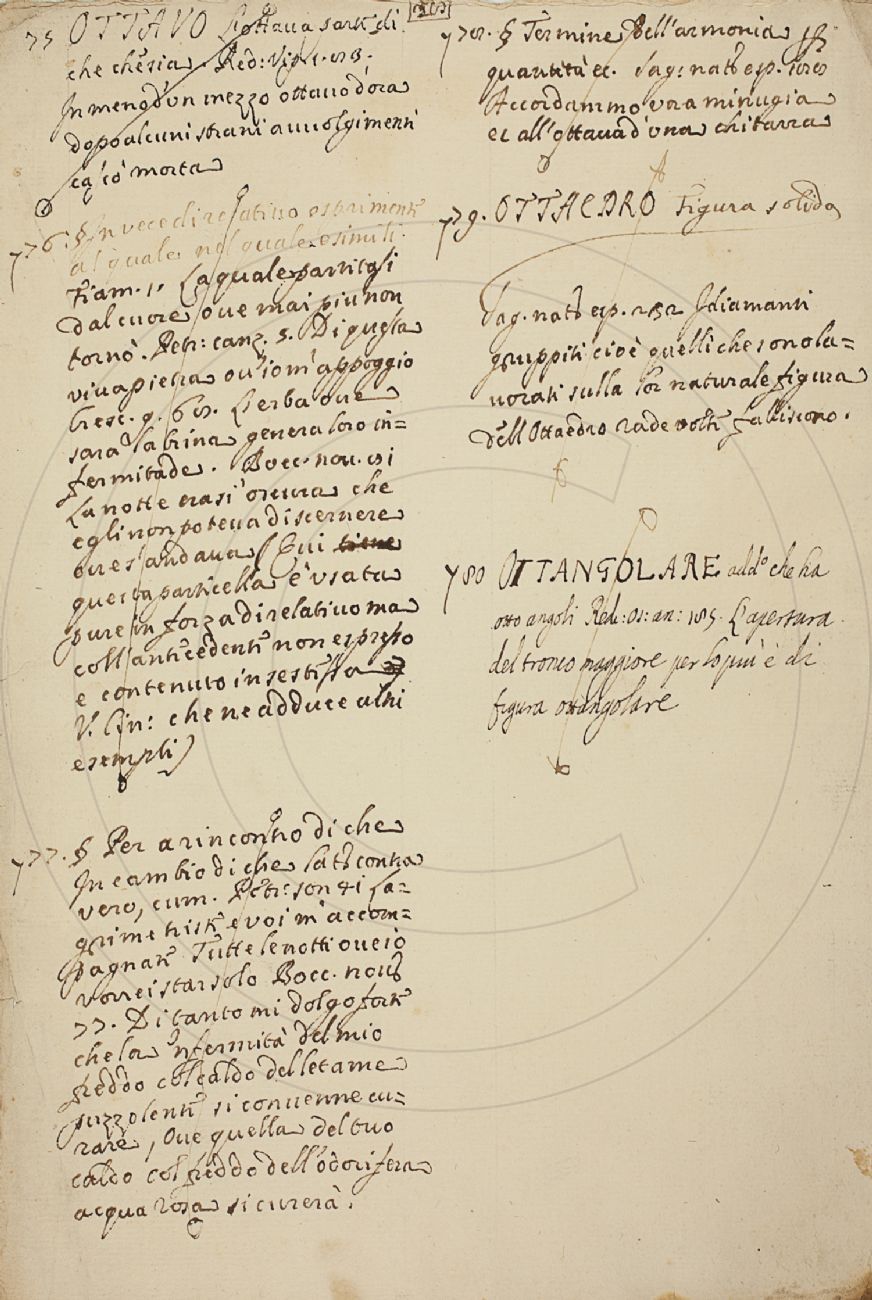 75 OTTAVO L'ottava parte di
che che sia
In meno d'un mezzo ottavo d'ora
dopo alcuni strani avvolgimenti
cascò morta
776. § In vece di relativo esprimente
al quale, nel quale, e simili.
Fiam. 1. La quale partitasi
dal cuore ove mai piu non
tornò. Petr: canz. 5. Di questa
viva pietra ov'io m'appoggio
Cresc. 9. 65. L'erba ove
sarà la brina genera loro in=
fermitade. Bocc. nov.
La notte era sì oscura che
egli non poteva discernere
ove s'andava (Qui
questa particella è usata
pure in forza di relativo ma
coll'antecedente non espresso
e contenuto in se stessa
V. Cin: che ne adduce altri
esempli)
777. § Per a rincontro di che
In cambio di che lat: contra
vero, cum. Petr: son La=
grime triste e voi m'accom=
pagnate Tutte le notti ov'io
vorrei star solo Bocc. nov
77. Di tanto mi dolgo forte
che la 'nfermità del mio
freddo col caldo del letame
puzzolente si convenne cu=
rare, Ove quella del tuo
caldo col freddo dell'odorifera
acqua rosa si curerà.
778. § Termine dell'armonia
quantità ec. Sag: nat: esp.
Accordammo una minugia
ec all'ottava d'una chitarra
779. OTTAEDRO Figura solida
Sag. nat: esp. 232 I diamanti
gruppiti cioè quelli che sono la=
vorati sulla lor naturale figura
dell'Ottaedro rade volte falliscono.
780 OTTANGOLARE add.º che ha
otto angoli Red: Os: an: 185. L'apertura
del tronco maggiore per lo più è di
figura ottangolare